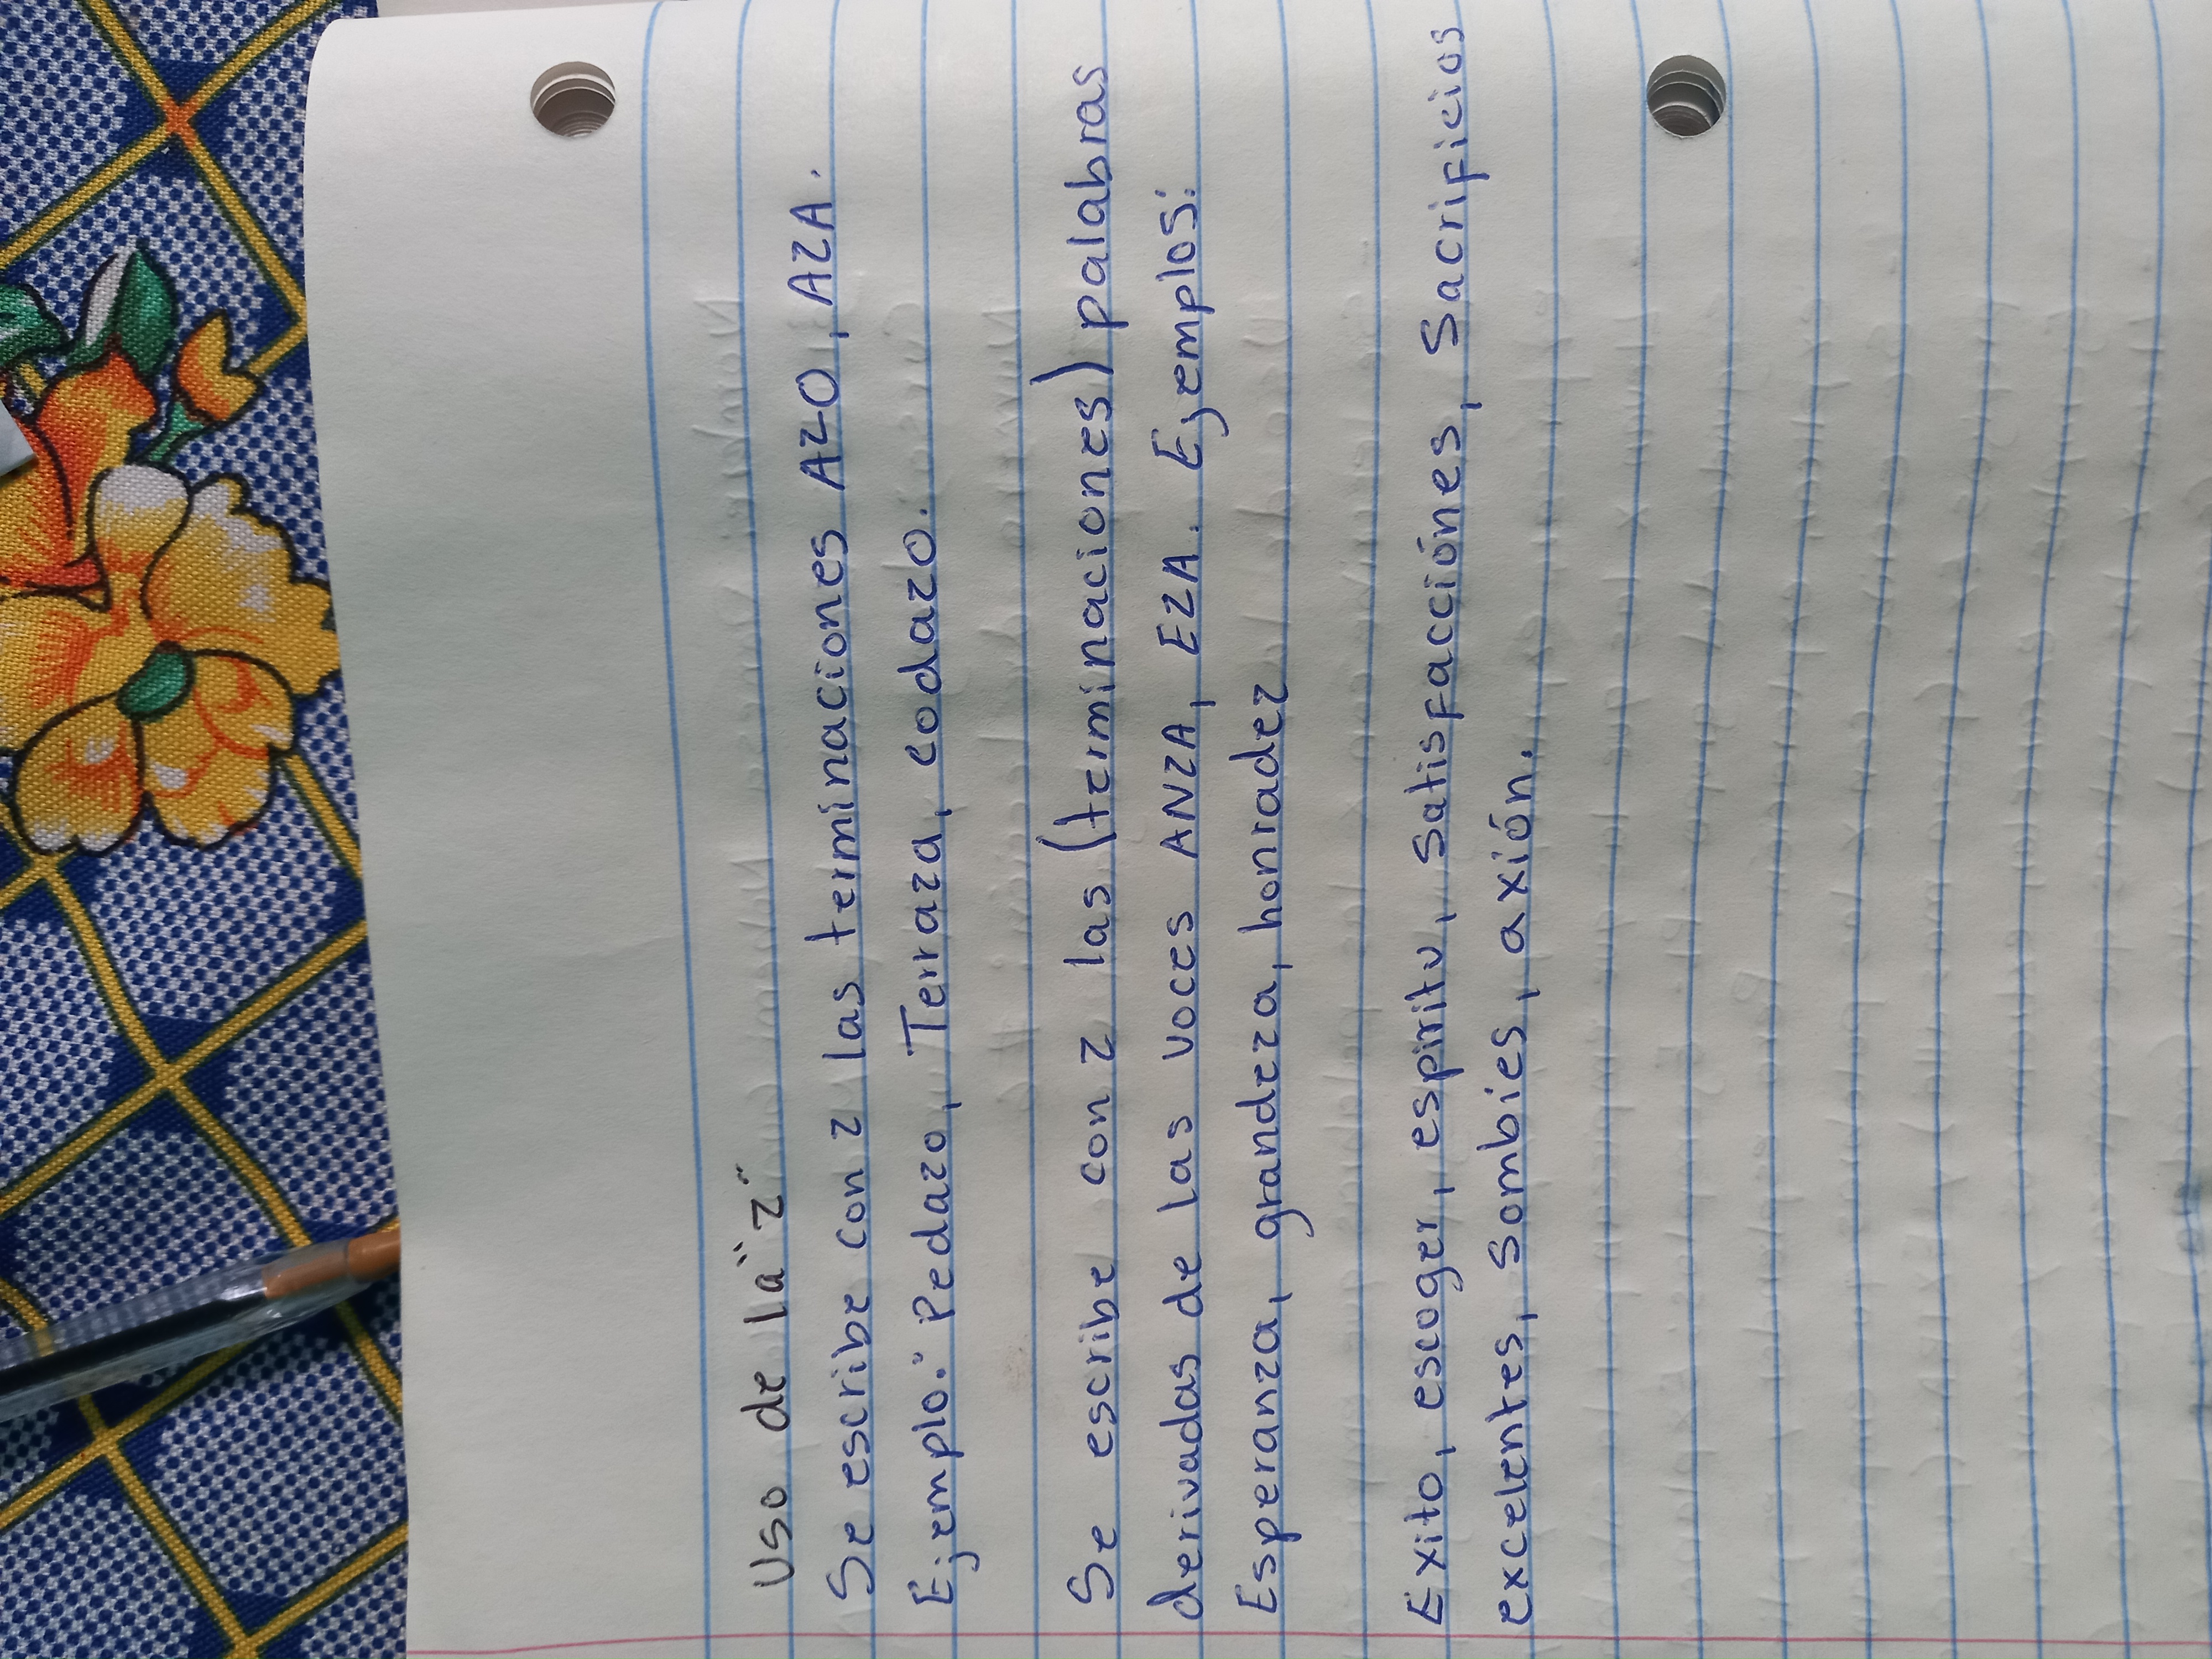 Uso de la "z"
Se escribe con z las terminaciones AZO, AZA.
Ejemplo: Pedazo, Terraza, codazo.
Se escribe con z las (terminaciones) palabras
derivadas de las voces ANZA, EZA. Ejemplos:
Esperanza, grandeza, honradez
Exito, escoger, espiritu, satisfacciónes, sacrificios
excelentes, sombies, axión.